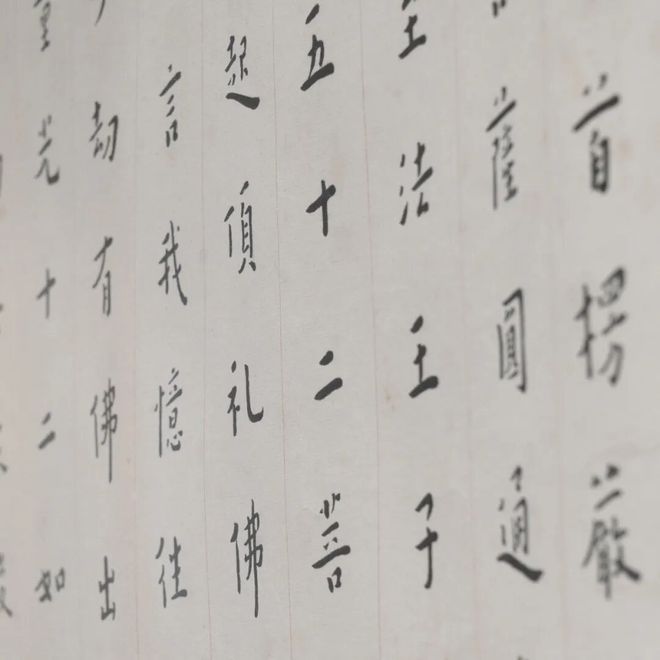 首楞嚴
薩圓通
法王子
五十二菩
起頂礼佛
言我憶往
劫有佛出
光十二如